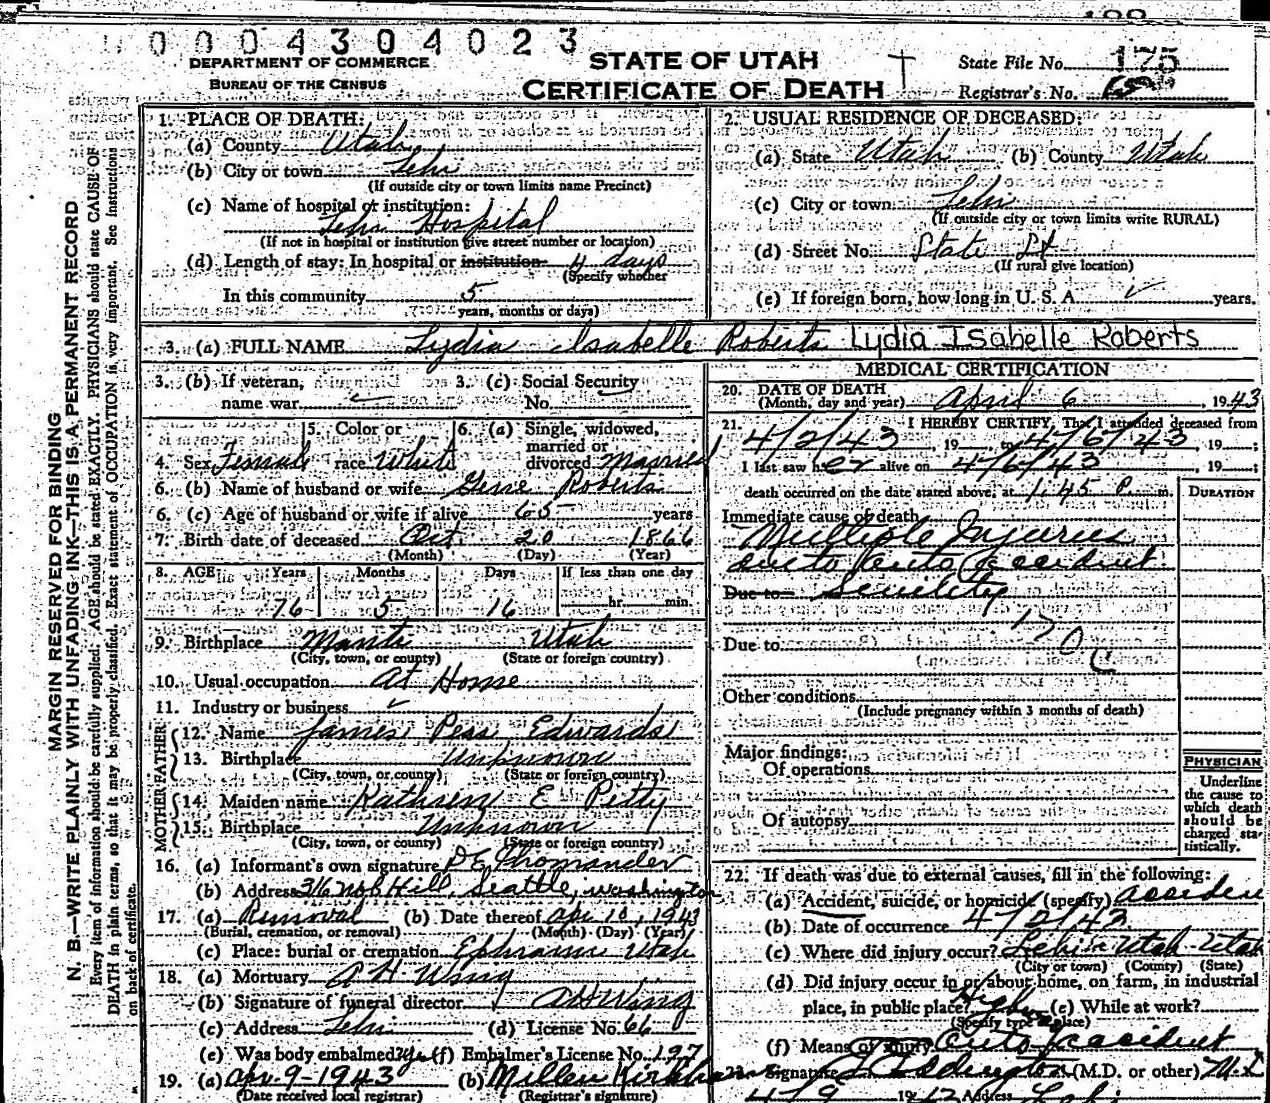 0 0 0 4 3 0 4 0 2 3
DEPARTMENT OF COMMERCE
BUREAU OF THE CENSUS
STATE OF UTAH
CERTIFICATE OF DEATH
State File No. 175
Registrar's No.
MARGIN RESERVED FOR BINDING
N. B.—WRITE PLAINLY WITH UNFADING INK—THIS IS A PERMANENT RECORD
Every item of information should be carefully supplied. AGE should be stated EXACTLY. PHYSICIANS should state CAUSE OF
DEATH in plain terms, so that it may be properly classified. Exact statement of OCCUPATION is very important. See Instructions
on back of certificate.
1. PLACE OF DEATH:
(a) County Utah
(b) City or town Lehi
(If outside city or town limits name Precinct)
(c) Name of hospital or institution:
Lehi Hospital
(If not in hospital or institution give street number or location)
(d) Length of stay: In hospital or institution 4 days
(Specify whether
In this community 5
years, months or days)
2. USUAL RESIDENCE OF DECEASED:
(a) State Utah (b) County Utah
(c) City or town Lehi
(If outside city or town limits write RURAL)
(d) Street No. State St
(If rural give location)
(e) If foreign born, how long in U. S. A. ✓ years.
3. (a) FULL NAME Lydia Isabelle Roberts Lydia Isabelle Roberts
3. (b) If veteran,
name war ✓
3. (c) Social Security
No.
4. Sex Female
5. Color or
race White
6. (a) Single, widowed,
married or
divorced Married
6. (b) Name of husband or wife Gene Roberts
6. (c) Age of husband or wife if alive 65 years
7. Birth date of deceased Oct 20 1866
(Month) (Day) (Year)
8. AGE Years Months Days If less than one day
76 5 16 hr. min.
9. Birthplace Manti Utah
(City, town, or county) (State or foreign country)
10. Usual occupation At Home
11. Industry or business ✓
FATHER
12. Name James Edwards
13. Birthplace Unknown
(City, town, or county) (State or foreign country)
MOTHER
14. Maiden name E Pitty
15. Birthplace Unknown
(City, town, or county) (State or foreign country)
16. (a) Informant's own signature D E Thomander
(b) Address 316 Nob Hill, Seattle, Washington
17. (a) Removal (b) Date thereof Apr 10, 1943
(Burial, cremation, or removal) (Month) (Day) (Year)
(c) Place: burial or cremation Ephraim Utah
18. (a) Mortuary A H Wing
(b) Signature of funeral director A H Wing
(c) Address Lehi (d) License No. 66
(e) Was body embalmed? Yes (f) Embalmer's License No. 197
19. (a) Apr. 9-1943 (b) Millen Kirkham
(Date received local registrar) (Registrar's signature)
MEDICAL CERTIFICATION
20. DATE OF DEATH
(Month, day and year) April 6, 1943
21. I HEREBY CERTIFY, That I attended deceased from
4/2/43, 19 to 4/6/43, 19 ;
I last saw her alive on 4/6/43, 19 ;
death occurred on the date stated above, at 1:45 P. m.
DURATION
Immediate cause of death
Multiple Injuries
due to Auto Accident
Due to Senility
170
Due to
C
Other conditions
(Include pregnancy within 3 months of death)
Major findings:
Of operations
Of autopsy
PHYSICIAN
Underline
the cause to
which death
should be
charged sta-
tistically.
22. If death was due to external causes, fill in the following:
(a) Accident, suicide, or homicide (specify) Acciden
(b) Date of occurrence 4/2/43
(c) Where did injury occur? Lehi Utah Utah
(City or town) (County) (State)
(d) Did injury occur in or about home, on farm, in industrial
place, in public place? (e) While at work?
(Specify type of place)
(f) Means of injury Auto Accident
23. Signature Eddington (M.D. or other) M.D.
4/9 1943 Address Lehi